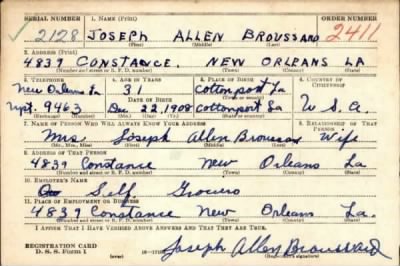 SERIAL NUMBER 1. NAME (Print) ORDER NUMBER
2128 JOSEPH ALLEN BROUSSARD 2411
(First) (Middle) (Last)
2. ADDRESS (Print)
4839 CONSTANCE. NEW ORLEANS LA
(Number and street or R. F. D. number) (Town) (County) (State)
3. TELEPHONE 4. AGE IN YEARS 5. PLACE OF BIRTH 6. COUNTRY OF CITIZENSHIP
New Orleans La 31 Cottonport La
DATE OF BIRTH
Upt. 9463 Dec 22, 1908 Cottonport La U. S. A.
7. NAME OF PERSON WHO WILL ALWAYS KNOW YOUR ADDRESS 8. RELATIONSHIP OF THAT PERSON
Mrs Joseph Allen Broussard Wife
9. ADDRESS OF THAT PERSON
4839 Constance New Orleans La
(Number and street or R. F. D. number) (Town) (County) (State)
10. EMPLOYER'S NAME
Self
11. PLACE OF EMPLOYMENT OR BUSINESS
4839 Constance New Orleans La.
(Number and street or R. F. D. number) (Town) (County) (State)
I AFFIRM THAT I HAVE VERIFIED ABOVE ANSWERS AND THAT THEY ARE TRUE.
REGISTRATION CARD
D. S. S. Form 1 Joseph Allen Broussard